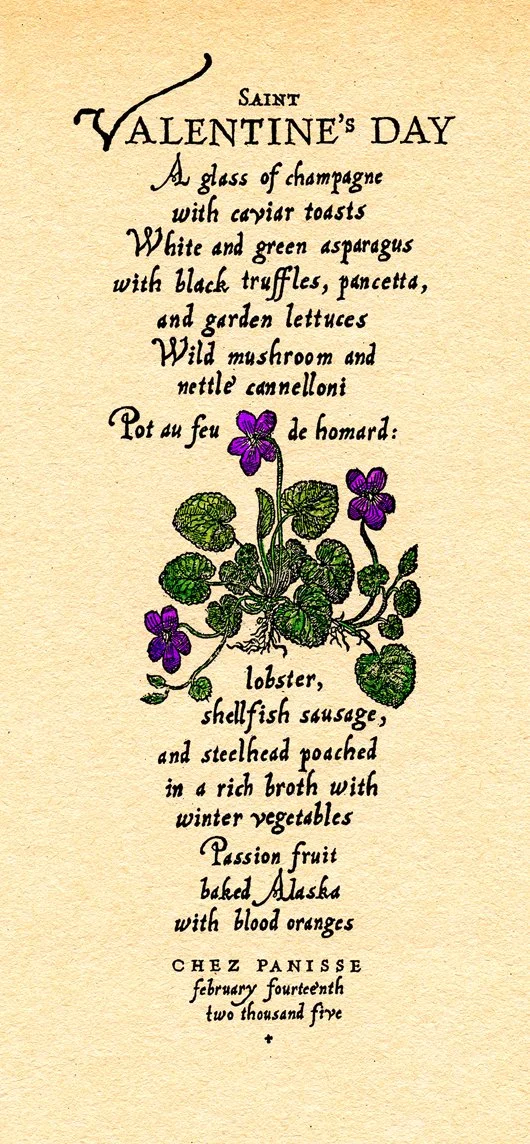 SAINT
VALENTINE'S DAY
A glass of champagne
with caviar toasts
White and green asparagus
with black truffles, pancetta,
and garden lettuces
Wild mushroom and
nettle cannelloni
Pot au feu de homard:
lobster,
shellfish sausage,
and steelhead poached
in a rich broth with
winter vegetables
Passion fruit
baked Alaska
with blood oranges
CHEZ PANISSE
february fourteenth
two thousand five